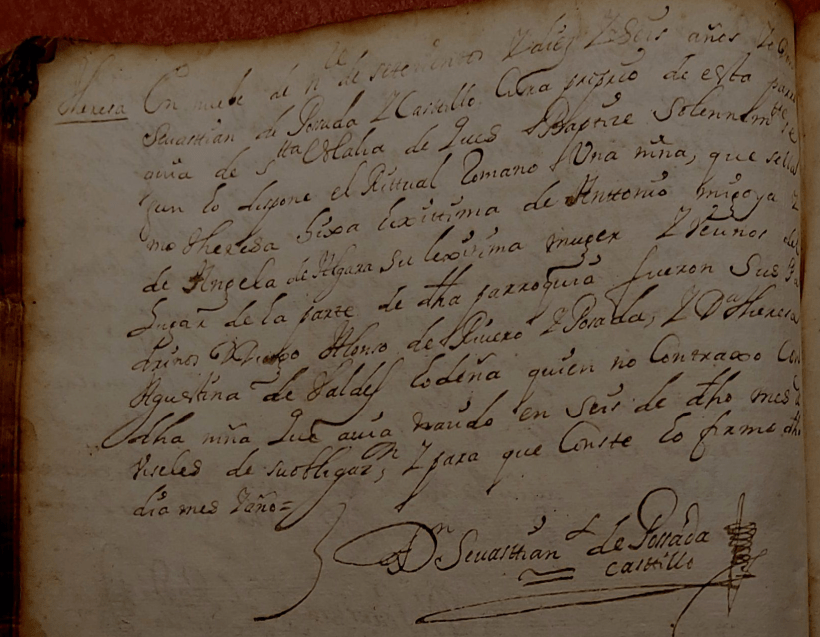 Theresa
En nuebe de de setecientos y diez y seis años yo Dn
Seuastian de Posada y Castillo Cura proprio de esta parro
quia de stta Olalia de Baptize Solennemte se
gun lo dispone el Rittual Romano Una niña, que se lla
mo theresa hixa lexittima de Anttonio migoya y
de Angela de Algara su lexitima muger y Veçinos del
lugar de la parte de dha parroquia fueron Sus Pa
drinos Alonso de Riuero y Posada, y Da theresa
Agustina de Valdes quien no Contraxo Con
dha niña que auia naçido en Seis de dho mes
de su obligaon, y para que Conste lo firmo dho
dia mes y año=
Dn Seuasttian de Possada
Casttillo